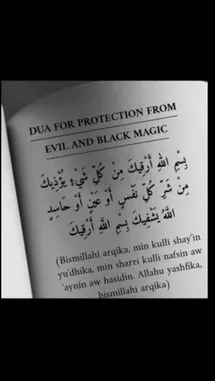 DUA FOR PROTECTION FROM
EVIL AND BLACK MAGIC
بِسْمِ اللهِ أَرْقِيكَ مِنْ كُلِّ شَيْءٍ يُؤْذِيكَ
مِنْ شَرِّ كُلِّ نَفْسٍ أَوْ عَيْنٍ أَوْ حَاسِدٍ
اللهُ يَشْفِيكَ بِسْمِ اللهِ أَرْقِيكَ
(Bismillahi arqika, min kulli shay'in
yu'dhika, min sharri kulli nafsin aw
'aynin aw hasidin. Allahu yashfika,
bismillahi arqika)